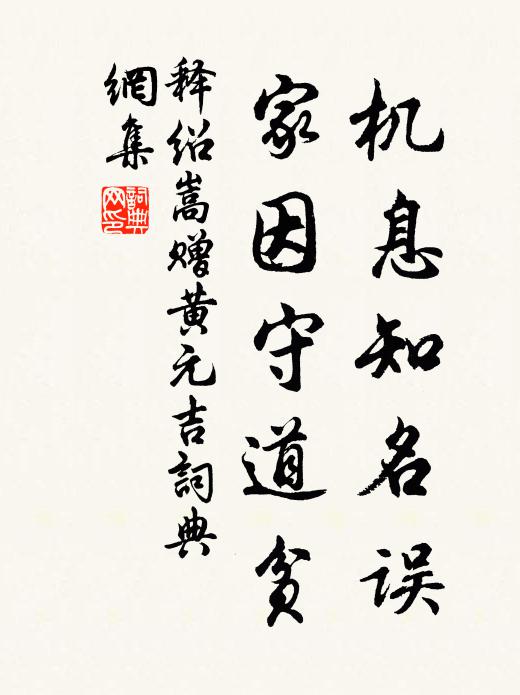 机息知名误
家因守道贫
释绍嵩赠黄元吉詞典
網集
詞典网印